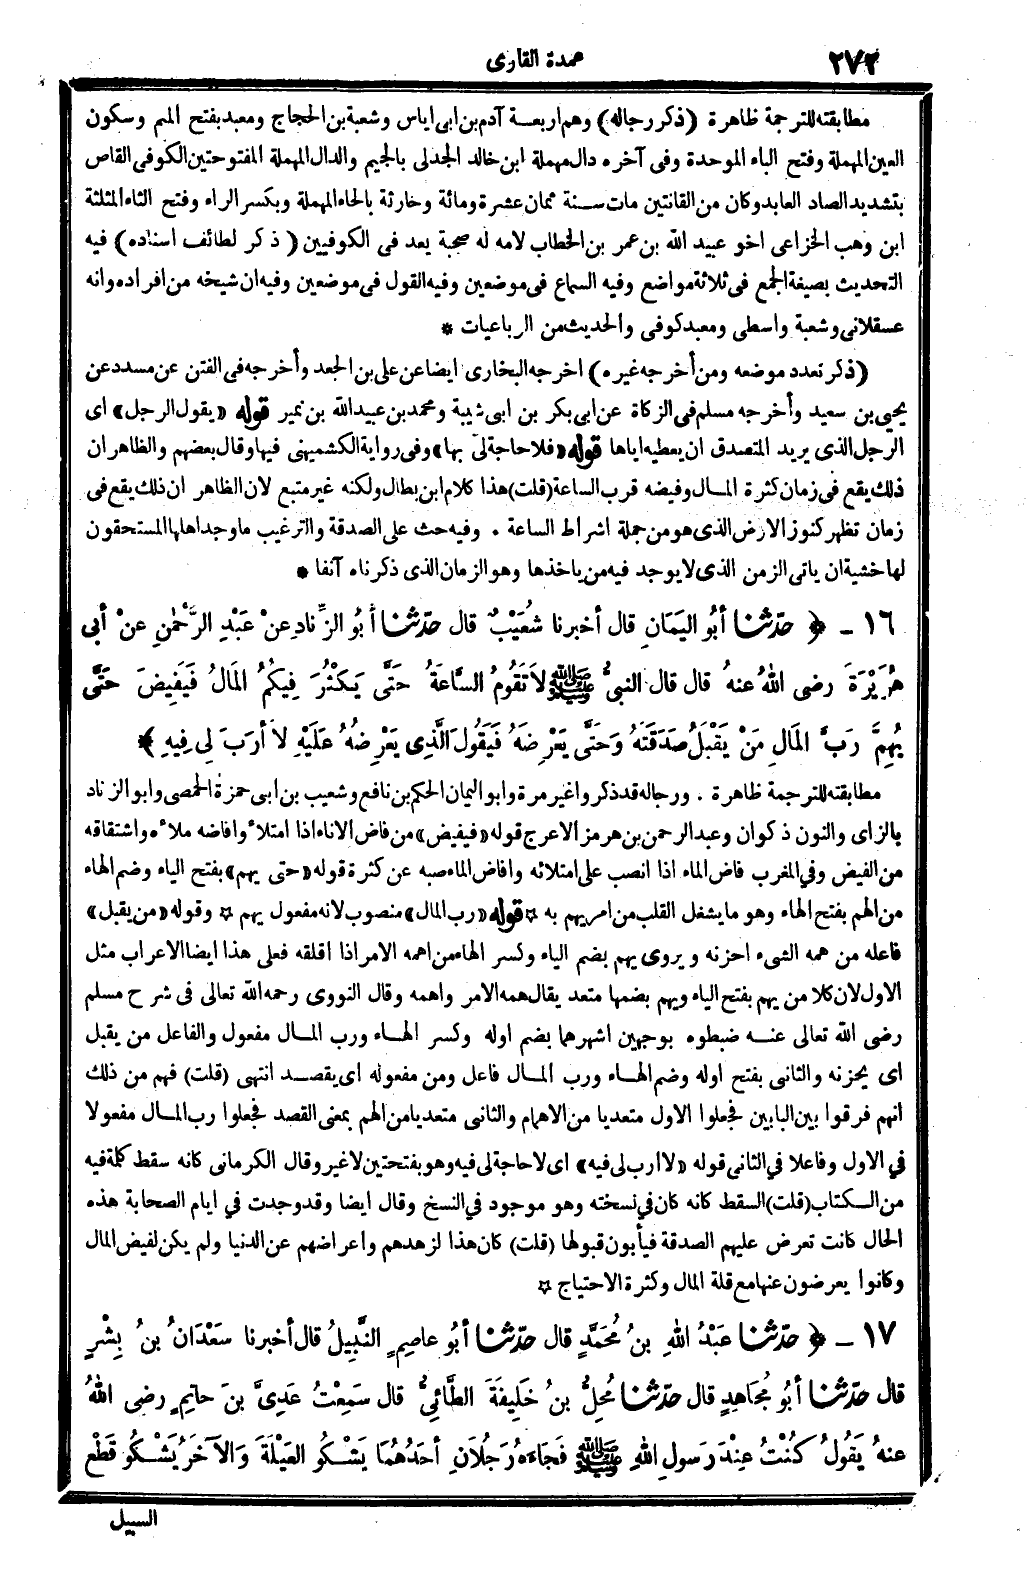 ٢٧٢
عمدة القارى
مطابقته للترجمة ظاهرة (ذكر رجاله) وهم اربعــة آدم بن ابى اياس وشعبة بن الحجاج ومعبد بفتح الميم وسكون
العين المهملة وفتح الباء الموحدة وفى آخره دال مهملة ابن خالد الجدلى بالجيم والدال المهملة المفتوحتين الكوفى القاص
بتشديد الصاد العابد وكان من القانتين مات ســنة ثمان عشرة ومائة وحارثة بالحاء المهملة وبكسر الراء وفتح الثاء المثلثة
ابن وهب الخزاعى اخو عبيد الله بن عمر بن الخطاب لامه له صحبة يعد فى الكوفيين (ذكر لطائف اسناده) فيه
التحديث بصيغة الجمع فى ثلاثة مواضع وفيه السماع فى موضعين وفيه القول فى موضعين وفيه ان شيخه من افراده وانه
عسقلانى وشعبة واسطى ومعبد كوفى والحديث من الرباعيات *
(ذكر تعدد موضعه ومن أخرجه غيره) اخرجه البخارى ايضا عن على بن الجعد وأخرجه فى الفتن عن مسدد عن
يحيى بن سعيد وأخرجه مسلم فى الزكاة عن ابى بكر بن ابى شيبة ومحمد بن عبيد الله بن نمير قوله «يقول الرجل» اى
الرجل الذى يريد المتصدق ان يعطيه اياها قوله «فلا حاجة لى بها» وفى رواية الكشميهنى فيها وقال بعضهم والظاهر ان
ذلك يقع فى زمان كثرة المــال وفيضه قرب الساعة (قلت) هذا كلام ابن بطال ولكنه غير متبع لان الظاهر ان ذلك يقع فى
زمان تظهر كنوز الارض الذى هو من جملة اشراط الساعة . وفيه حث على الصدقة والترغيب ما وجد اهلها المستحقون
لها خشية ان ياتى الزمن الذى لا يوجد فيه من ياخذها وهو الزمان الذى ذكرناه آنفا *
١٦ ـ ﴿ حدّثنا أبُو اليَمَانِ قال أخبرنا شُعَيْبٌ قال حدّثنا أبُو الزِّنادِ عنْ عَبْدِ الرَّحْمٰنِ عنْ أبى
هُرَيْرَةَ رضى اللهُ عنهُ قال قال النبىُّ ﷺ لاَ تَقُومُ السَّاعَةُ حَتَّى يَكْثُرَ فِيكُمُ المَالُ فَيَفِيضَ حَتَّى
يُهِمَّ رَبَّ المَالِ مَنْ يَقْبَلُ صَدَقَتَهُ وَحَتَّى يَعْرِضَهُ فَيَقُولَ الَّذِى يَعْرِضُهُ عَلَيْهِ لاَ أرَبَ لِى فِيهِ ﴾
مطابقته للترجمة ظاهرة . ورجاله قد ذكروا غير مرة وابو اليمان الحكم بن نافع وشعيب بن ابى حمزة الحمصى وابو الزناد
بالزاى والنون ذكوان وعبد الرحمن بن هرمز الاعرج قوله «فيفيض» من فاض الاناء اذا امتلأ وأفاضه ملأه واشتقاقه
من الفيض وفى المغرب فاض الماء اذا انصب على امتلائه وافاض الماء صبه عن كثرة قوله «حتى يهم» بفتح الياء وضم الهاء
من الهم بفتح الهاء وهو ما يشغل القلب من امر يهم به ☆ قوله «رب المال» منصوب لانه مفعول يهم ☆ وقوله «من يقبل»
فاعله من همه الشىء احزنه ويروى يهم بضم الياء وكسر الهاء من اهمه الامر اذا اقلقه فعلى هذا ايضا الاعراب مثل
الاول لان كلا من يهم بفتح الياء ويهم بضمها متعد يقال همه الامر واهمه وقال النووى رحمه الله تعالى فى شرح مسلم
رضى الله تعالى عنــه ضبطوه بوجهين اشهرهما بضم اوله وكسر الهــاء ورب المــال مفعول والفاعل من يقبل
اى يحزنه والثانى بفتح اوله وضم الهــاء ورب المــال فاعل ومن مفعوله اى يقصــد انتهى (قلت) فهم من ذلك
انهم فرقوا بين البابين فجعلوا الاول متعديا من الاهمام والثانى متعديا من الهم بمعنى القصد فجعلوا رب المــال مفعولا
فى الاول وفاعلا فى الثانى قوله «لا ارب لى فيه» اى لا حاجة لى فيه وهو بفتحتين لا غير وقال الكرمانى كانه سقط كلمة فيه
من الــكتاب (قلت) السقط كانه كان فى نسخته وهو موجود فى النسخ وقال ايضا وقد وجدت فى ايام الصحابة هذه
الحال كانت تعرض عليهم الصدقة فيأبون قبولها (قلت) كان هذا لزهدهم واعراضهم عن الدنيا ولم يكن لفيض المال
وكانوا يعرضون عنها مع قلة المال وكثرة الاحتياج ☆
١٧ ـ ﴿ حدّثنا عَبْدُ اللهِ بنُ مُحَمَّدٍ قال حدّثنا أبُو عاصِمٍ النَّبِيلُ قال أخبرنا سَعْدَانُ بنُ بِشْرٍ
قال حدّثنا أبُو مُجَاهِدٍ قال حدّثنا مُحِلُّ بنُ خَلِيفَةَ الطَّائِىُّ قال سَمِعْتُ عَدِىَّ بنَ حاتِمٍ رضى اللهُ
عنهُ يَقُولُ كُنْتُ عِنْدَ رَسولِ اللهِ ﷺ فَجَاءَهُ رَجُلاَنِ أحَدُهُمَا يَشْكُو العَيْلَةَ وَالآخَرُ يَشْكُو قَطْعَ
السبيل